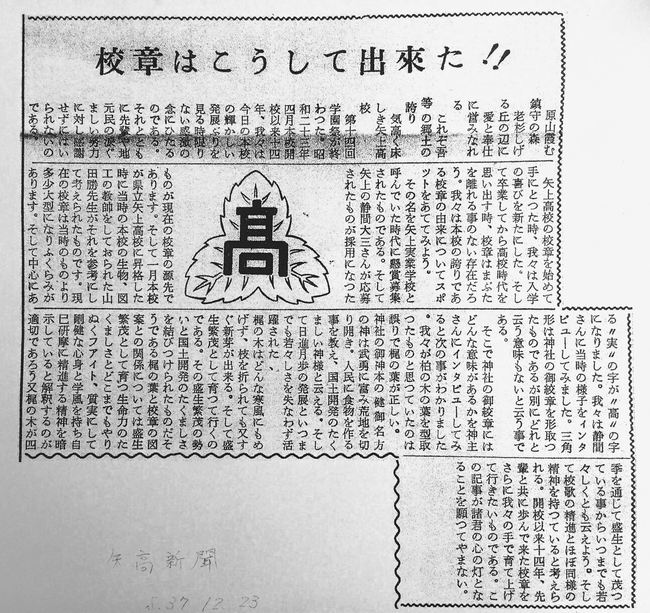 校章はこうして出來た!!
原山霞む
鎮守の森
老杉しげ
る丘の辺に
愛と奉仕
に営みなれ
る
これぞ吾
等の郷土の
誇り
気高く床
しき矢上高
校
第十四回
学園祭が終
わつた。昭
和二十三年
四月本校開
校以来十四
年、我々は
今日の本校
の輝かしい
発展ぶりを
見る時限り
ない感激の
念にひたる
のである。
それととも
に先輩や地
元民の涙ぐ
ましい努力
に対し感謝
せずにはい
られないの
である。
矢上高校の校章を始めて
手にとつた時、我々は入学
の喜びを新たにした。そし
て卒業してから高校時代を
思い出す時、校章はまぶた
を離れる事のない存在だろ
う。我々は本校の誇りであ
る校章の由来についてスポ
ットをあててみよう。
その名を矢上実業学校と
呼んでいた時代に懸賞募集
されたものである。そして
矢上の静間大三さんが応募
されたものが採用になつた
高
ものが現在の校章の源先で
あります。そして一月本校
が県立矢上高校に昇格した
時に当時の本校の生物、図
工の教師をしておられた山
田勝先生がそれを参考にし
て考えられたものです。現
在の校章は当時のものより
多少大型になりふくらみが
あります。そして中心にあ
る〝実〟の字が〝高〟の字
になりました。我々は静間
さんに当時の様子をインタ
ビューしてみました。三角
形は神社の御紋章を形取つ
たものであるが別にどれと
云う意味もないと云う事で
ある。
そこで神社の御紋章には
どんな意味があるかを神主
さんにインタビューしてみ
ると次の事がわかりました
。我々が柏の木の葉を型取
つたものと思つていたのは
誤りで梶の葉が正しい。
神社の御神本の健御名方
の神は武勇に富み荒地を切
り開き、人民に食物を作る
事を教え、国土開発のたく
ましい神様と云える。そし
て日進月歩の発展といつま
でも若々しさを失なわず活
躍された。
梶の木はどんな寒風にもめ
げず、枝を折られても又す
ぐ新芽が出来る。そして盛
生繁茂として育つて行くの
である。その盛生繁茂の勢
いと国土開発のたくましさ
を結びつけられたものだそ
うである梶の葉と校章の図
案との関係については盛生
繁茂として育つ生命力のた
くましさとどこまでもやり
ぬくファイト、質実にして
剛健な心身と学風を持ち自
已研摩に精進する精神を暗
示していると解釈するのが
適切であろう又梶の木が四
季を通じて盛生として茂つ
ている事からいつまでも若
々しくとも云えよう。そし
て校歌の精進とほぼ同様の
精神を持つていると考えら
れる。開校以来十四年、先
輩と共に歩んで来た校章を
さらに我々の手で育て上げ
て行きたいものである。こ
の記事が諸君の心の灯とな
ることを願つてやまない。
矢高新聞
S.37 12.23